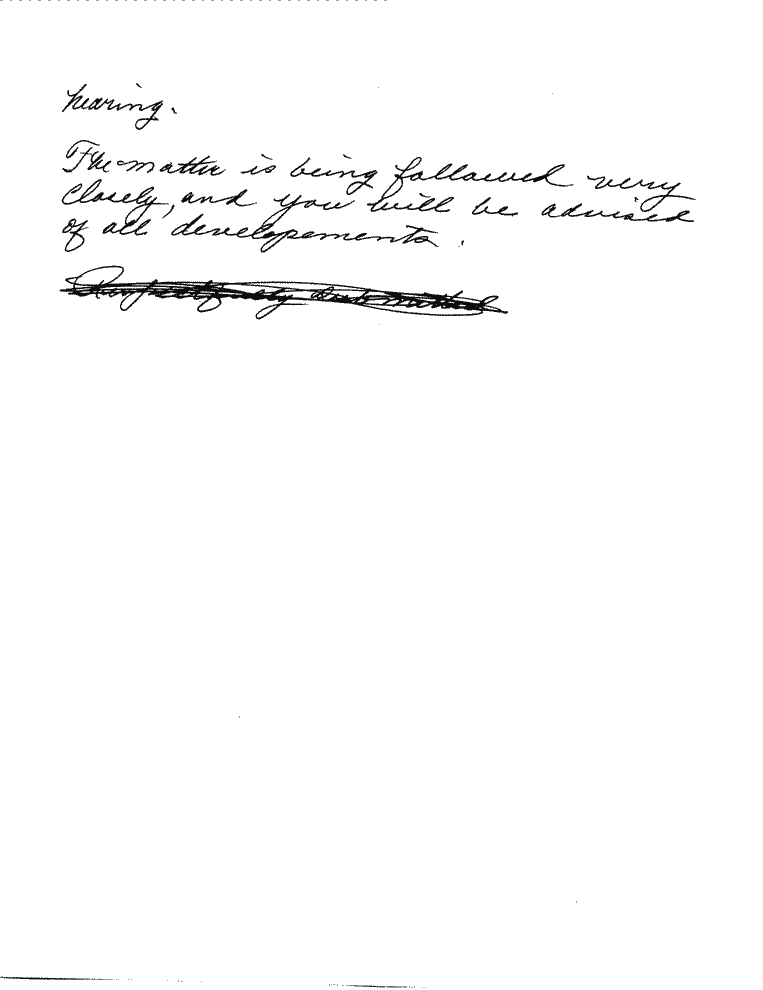 hearing.
The matter is being followed very
closely, and you will be advised
of all developements.
Respectfully submitted